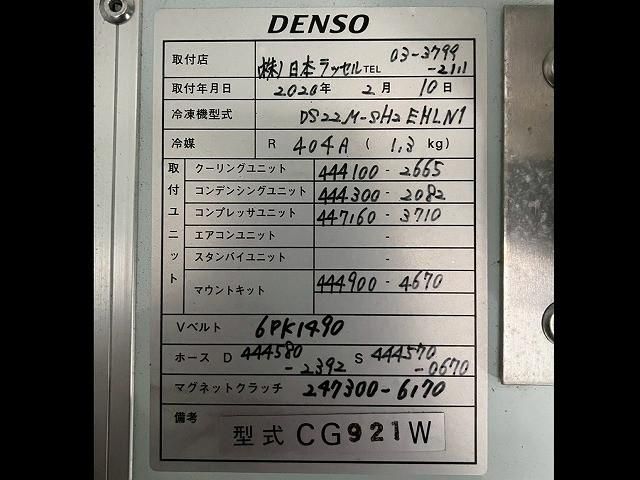 DENSO
取付店 (株)日本ラッセル TEL 03-3799-2111
取付年月日 2020年 2月 10日
冷凍機型式 DS22M-SH2EHLN1
冷媒 R 404A ( 1.3 kg)
取付ユニット
クーリングユニット 444100 - 2665
コンデンシングユニット 444300 - 2082
コンプレッサユニット 447160 - 3710
エアコンユニット -
スタンバイユニット -
マウントキット 444900 - 4670
Vベルト 6PK1490
ホース D 444580-2392 S 444570-0670
マグネットクラッチ 247300-6170
備考
型式 CG921W